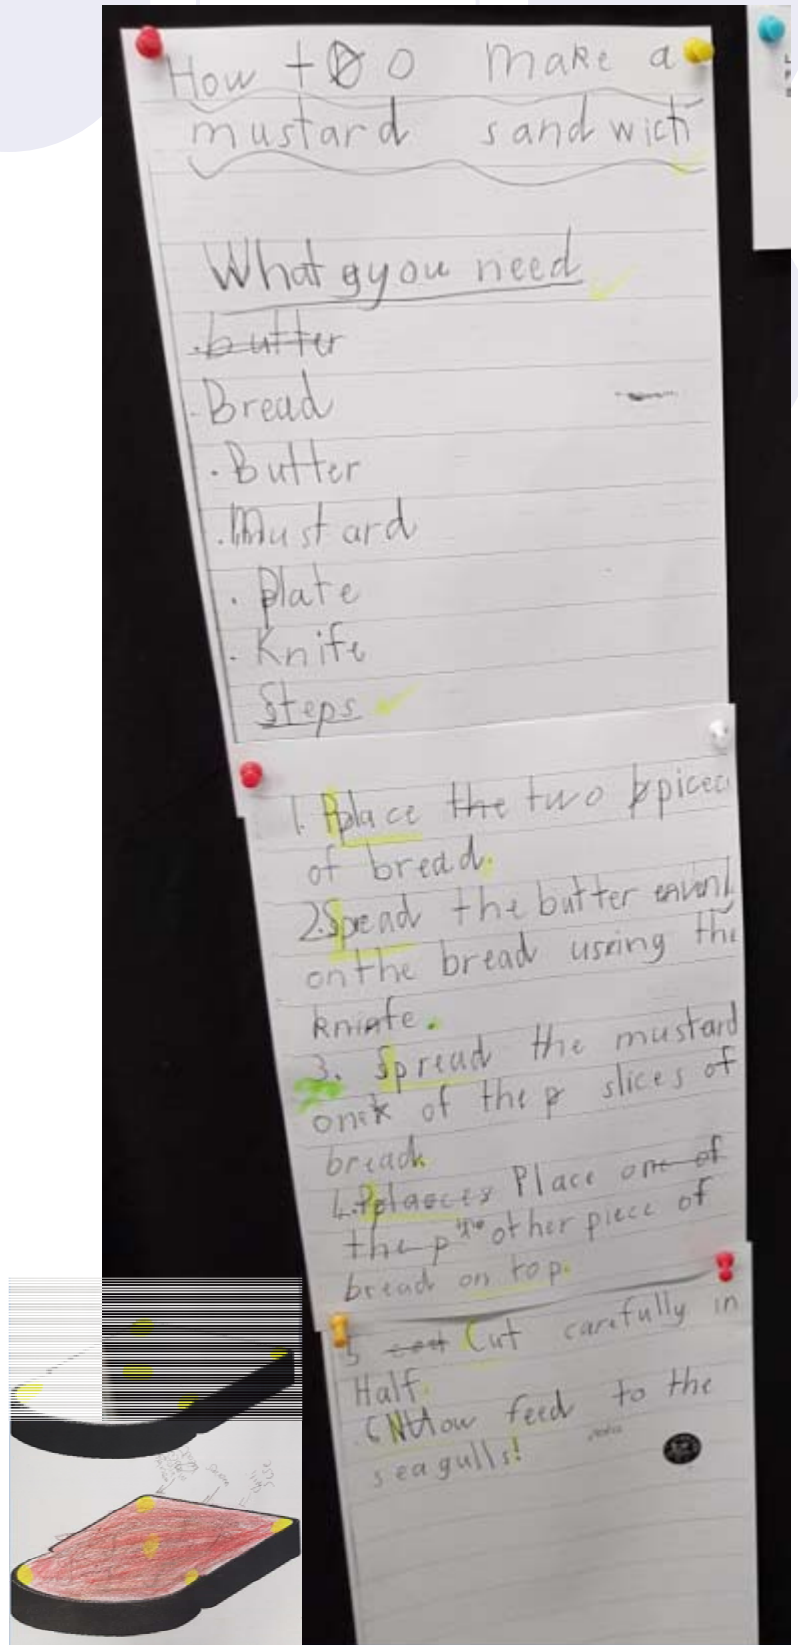 How to make a
mustard sandwich
What you need
butter
· Bread
· Butter
· Mustard
· Plate
· Knife
Steps
1. Place the two
of bread.
2. Spread the butter
on the bread using the
knife.
3. Spread the mustard
one of the slices of
bread.
4. Place one of
the other piece of
bread on top.
5 Cut carefully in
Half.
Now feed to the
seagulls!